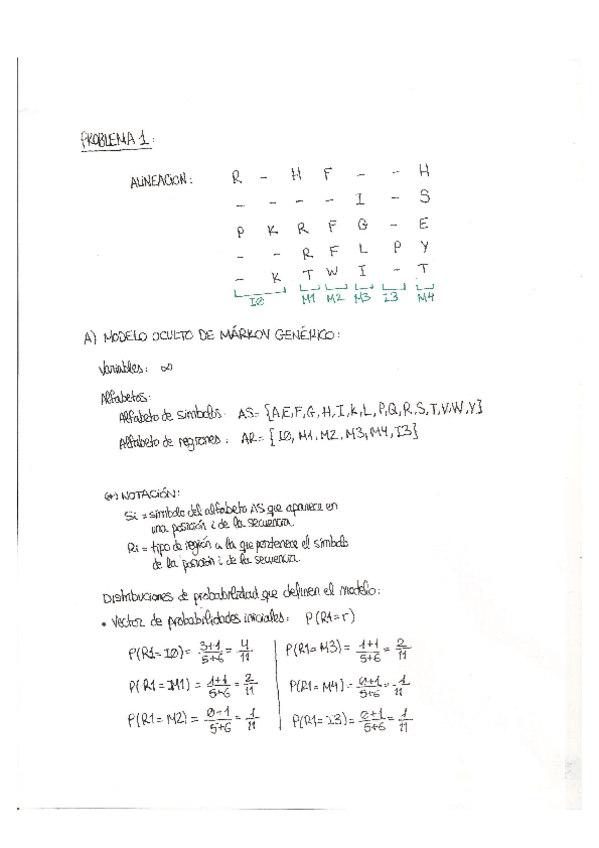 PROBLEMA 1:
ALINEACION: R - H F - - H
- - - - I - S
P K R F G - E
- - R F L P Y
- K T W I - T
I0 M1 M2 M3 I3 M4
A) MODELO OCULTO DE MÁRKOV GENÉRICO:
Variables: ∞
Alfabetos:
Alfabeto de símbolos: AS= {A,E,F,G,H,I,K,L,P,Q,R,S,T,V,W,Y}
Alfabeto de regiones: AR= {I0, M1, M2, M3, M4, I3}
(*) NOTACIÓN:
Si = símbolo del alfabeto AS que aparece en
una posición i de la secuencia.
Ri = tipo de región a la que pertenece el símbolo
de la posición i de la secuencia.
Distribuciones de probabilidad que definen el modelo:
• Vector de probabilidades iniciales: P(R1=r)
P(R1=I0)= 3+1/5+6 = 4/11 | P(R1=M3)= 1+1/5+6 = 2/11
P(R1=M1)= 1+1/5+6 = 2/11 | P(R1=M4)= 0+1/5+6 = 1/11
P(R1=M2)= 0+1/5+6 = 1/11 | P(R1=I3)= 0+1/5+6 = 1/11